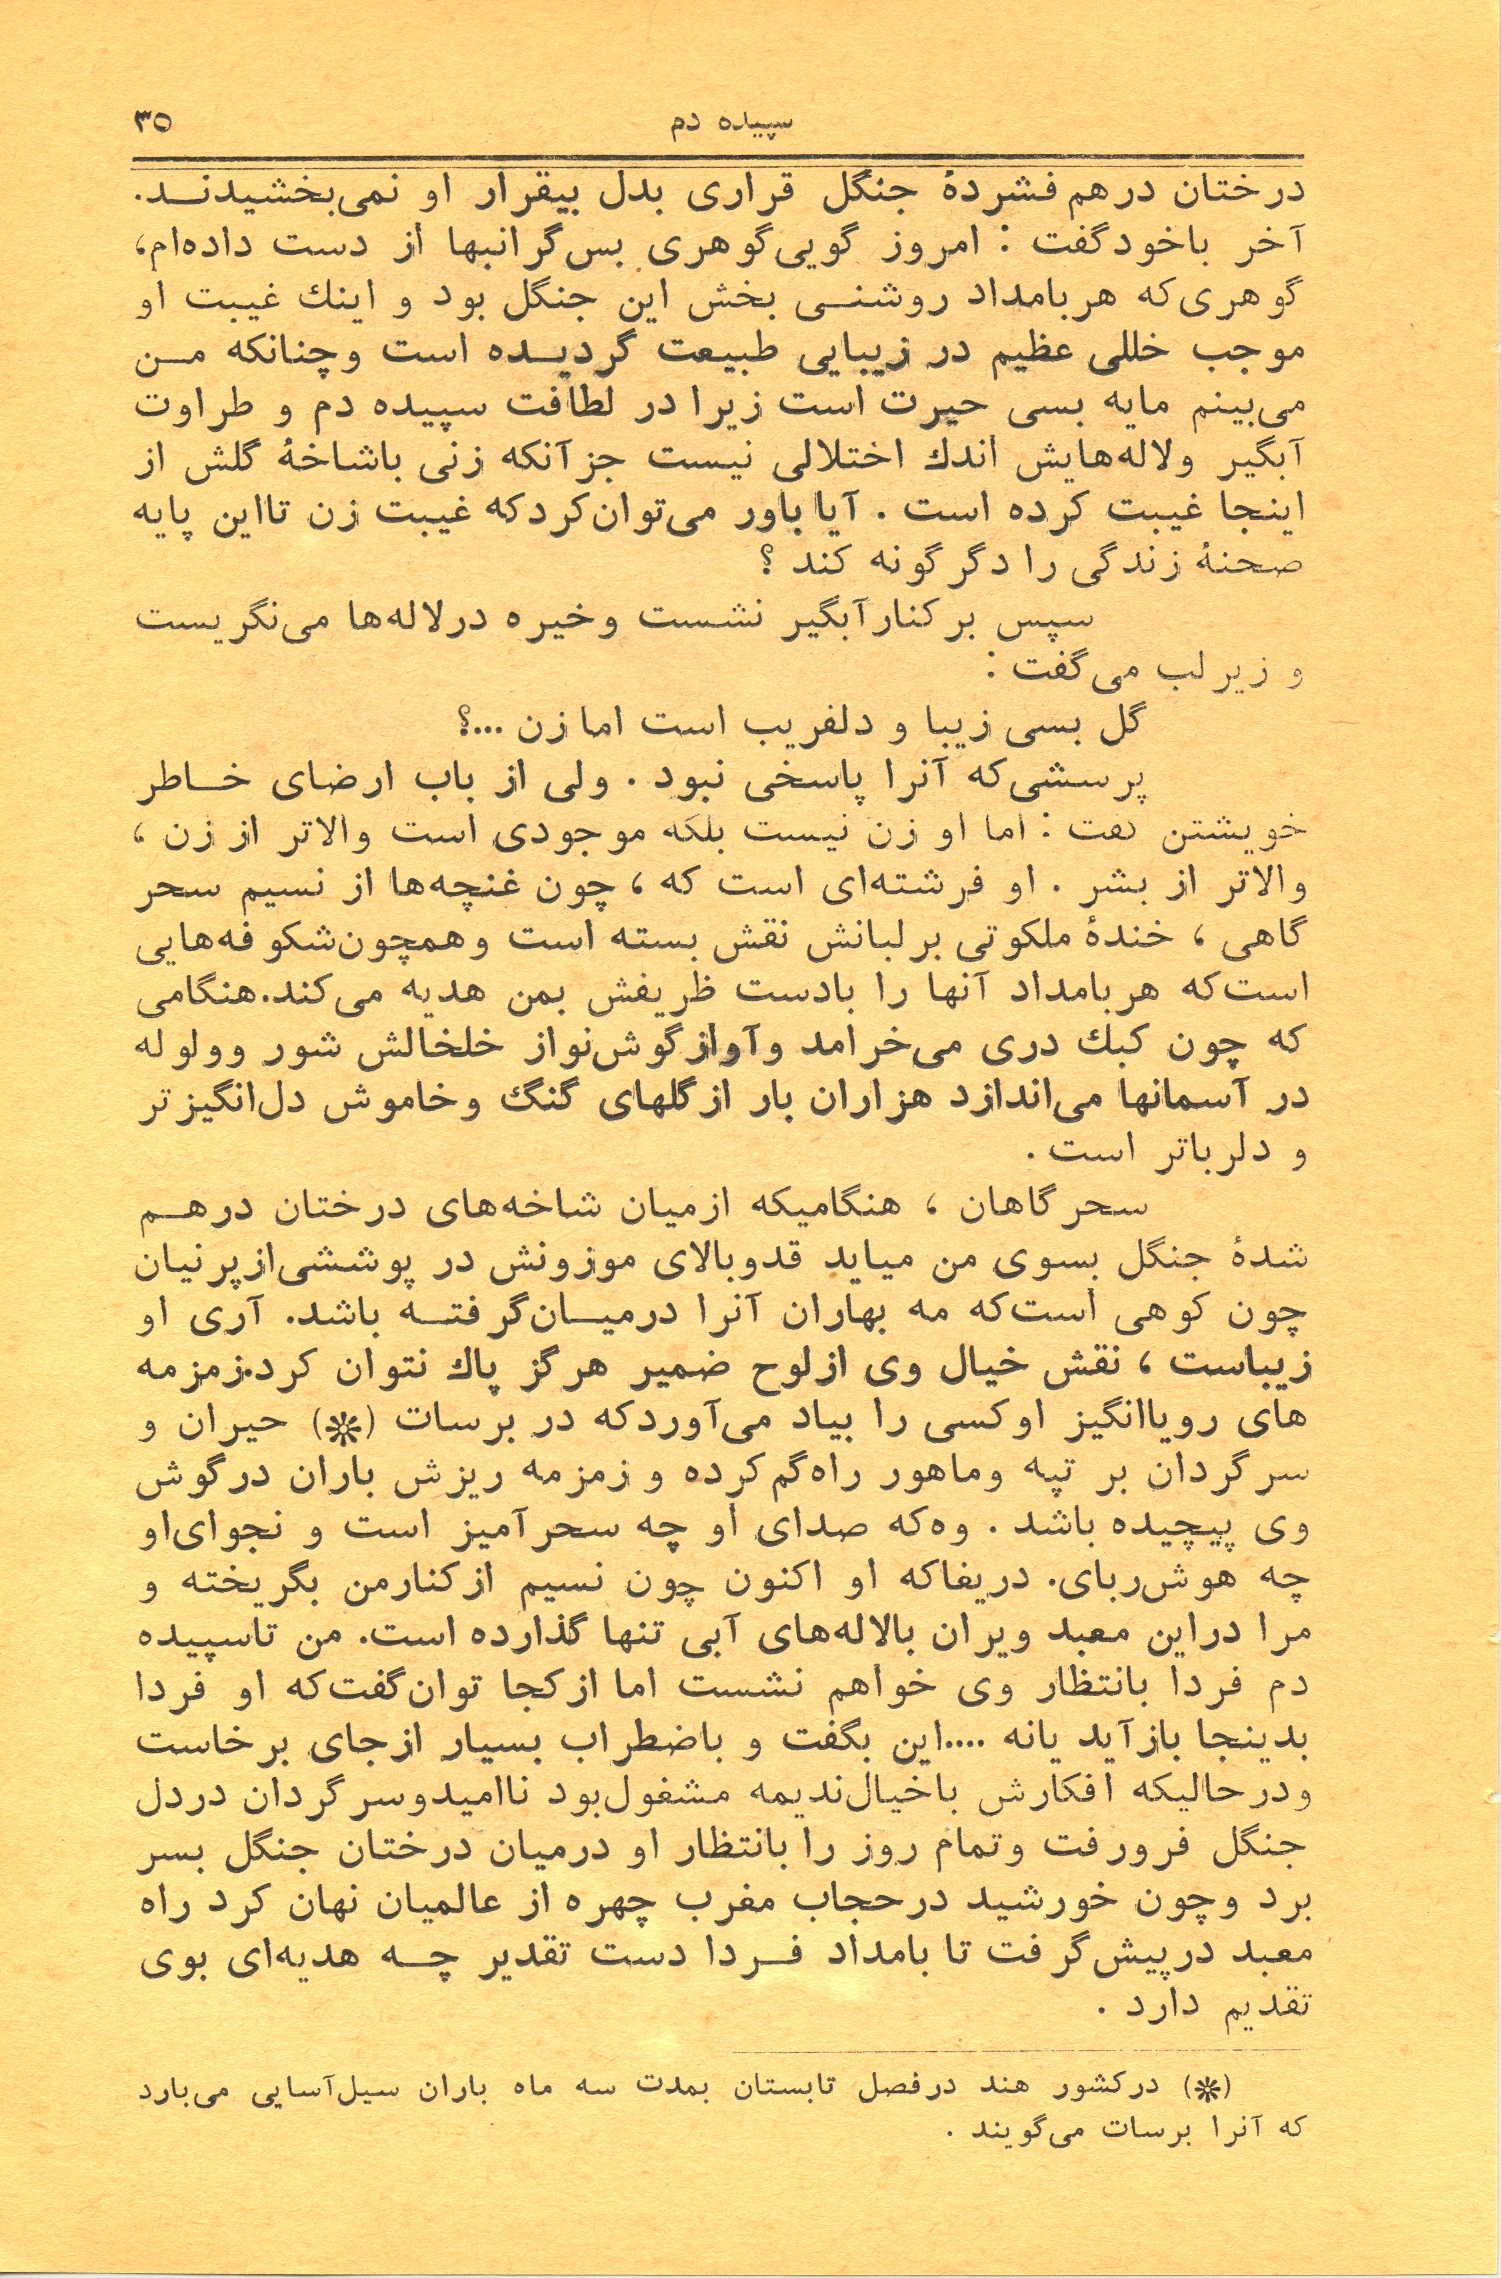 سپیده دم ۳۵
درختان درهم فشردهٔ جنگل قراری بدل بیقرار او نمی‌بخشیدنـد.
آخر باخودگفت : امروز گویی‌گوهری بس‌گرانبها از دست داده‌ام،
گوهری‌که هربامداد روشنـی بخش این جنگل بود و اینك غیبت او
موجب خللی عظیم در زیبایی طبیعت گردیـده است وچنانکه مـن
می‌بینم مایه بسی حیرت است زیرا در لطافت سپیده دم و طراوت
آبگیر ولاله‌هایش اندك اختلالی نیست جزآنکه زنی باشاخهٔ گلش از
اینجا غیبت کرده است . آیا باور می‌توان‌کردکه غیبت زن تااین پایه
صحنهٔ زندگی را دگرگونه کند ؟
سپس برکنارآبگیر نشست وخیره درلاله‌ها می‌نگریست
و زیرلب می‌گفت :
گل بسی زیبا و دلفریب است امازن ...؟
پرسشی‌که آنرا پاسخی نبود . ولی از باب ارضای خـاطر
خویشتن گفت : اما او زن نیست بلکه موجودی است والاتر از زن ،
والاتر از بشر . او فرشته‌ای است که ، چون غنچه‌ها از نسیم سحر
گاهی ، خندهٔ ملکوتی برلبانش نقش بسته است وهمچون‌شکوفه‌هایی
است‌که هربامداد آنها را بادست ظریفش بمن هدیه می‌کند.هنگامی
که چون کبك دری می‌خرامد وآوازگوش‌نواز خلخالش شور وولوله
در آسمانها می‌اندازد هزاران بار ازگلهای گنگ وخاموش دل‌انگیزتر
و دلرباتر است .
سحرگاهان ، هنگامیکه ازمیان شاخه‌های درختان درهـم
شدهٔ جنگل بسوی من میاید قدوبالای موزونش در پوششی‌ازپرنیان
چون کوهی است‌که مه بهاران آنرا درمیـان‌گرفتـه باشد. آری او
زیباست ، نقش خیال وی ازلوح ضمیر هرگز پاك نتوان کرد.زمزمه
های رویاانگیز اوکسی را بیاد می‌آوردکه در برسات (✻) حیران و
سرگردان بر تپه وماهور راه‌گم‌کرده و زمزمه ریزش باران درگوش
وی پیچیده باشد . وه‌که صدای او چه سحرآمیز است و نجوای‌او
چه هوش‌ربای. دریغاکه او اکنون چون نسیم ازکنارمن بگریخته و
مرا دراین معبد ویران بالاله‌های آبی تنها گذارده است. من تاسپیده
دم فردا بانتظار وی خواهم نشست اما ازکجا توان‌گفت‌که او فردا
بدینجا بازآید یانه ....این بگفت و باضطراب بسیار ازجای برخاست
ودرحالیکه افکارش باخیال‌ندیمه مشغول‌بود ناامیدوسرگردان دردل
جنگل فرورفت وتمام روز را بانتظار او درمیان درختان جنگل بسر
برد وچون خورشید درحجاب مغرب چهره از عالمیان نهان کرد راه
معبد درپیش‌گرفت تا بامداد فـردا دست تقدیر چـه هدیه‌ای بوی
تقدیم دارد .
(✻) درکشور هند درفصل تابستان بمدت سه ماه باران سیل‌آسایی می‌بارد
که آنرا برسات می‌گویند .